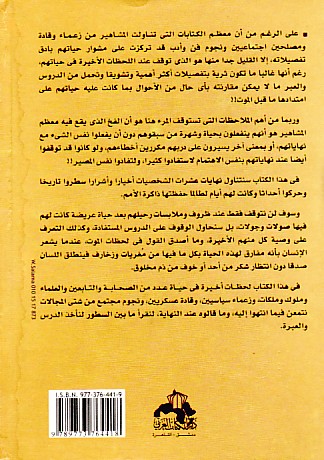 • على الرغم من أن معظم الكتابات التي تناولت المشاهير من زعماء وقادة
ومصلحين اجتماعيين ونجوم فن وأدب قد تركزت على مشوار حياتهم بأدق
تفصيلاته، إلا القليل جدا منها هو الذي توقف عند اللحظات الأخيرة في حياتهم،
رغم أنها غالبا ما تكون ثرية بتفصيلات أكثر أهمية وتشويقا وتحمل من الدروس
والعبر ما لا يمكن مقارنته بأى حال من الأحوال بما كانت عليه حياتهم على
امتدادها ما قبل الموت!!
وربما من أهم الملاحظات التي تستوقف المرء هنا هو أن الفخ الذى يقع فيه معظم
المشاهير هو أنهم ينفعلون بحياة وشهرة من سبقوهم دون أن يفعلوا نفس الشيء مع
نهاياتهم، أو بمعنى آخر يسيرون على دربهم مكررين أخطاءهم، ولو كانوا قد توقفوا
أيضا عند نهاياتهم بنفس الاهتمام لاستفادوا كثيرا، ولتفادوا نفس المصير!!
في هذا الكتاب سنتناول نهايات عشرات الشخصيات أخيارا وأشرارا سطروا تاريخا
وحركوا أحداثا وكانت لهم أيام لطالما حفظتها ذاكرة الأمم.
وسوف لن نتوقف فقط عند ظروف وملابسات رحيلهم بعد حياة عريضة كانت لهم
فيها صولات وجولات، بل سنحاول الوقوف على الدروس المستفادة، وكذلك التعرف
على وصية كل منهم الأخيرة، وما أصدق القول في لحظات الموت، عندما يشعر
الإنسان بأنه مفارق لهذه الحياة بكل ما فيها من مغريات وزخارف فينطلق اللسان
صدقا دون انتظار شكر من أحد أو خوف من ذم مخلوق.
في هذا الكتاب لحظات أخيرة في حياة عدد من الصحابة والتابعين والعلماء
وملوك وملكات، وزعماء سياسيين، وقادة عسكريين، ونجوم مجتمع من شتى المجالات
نتمعن فيما انتهوا إليه، وما قالوه عند النهاية، لنقرأ ما بين السطور لنأخذ الدرس
والعبرة.
I.S.B.N. 977-376-441-9
9 789773 764418
دار الكتاب العربي
دمشق - القاهرة